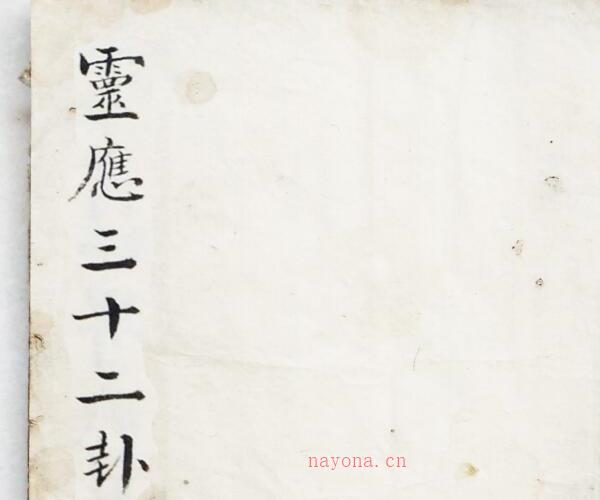 靈應三十二卦
nayona.cn